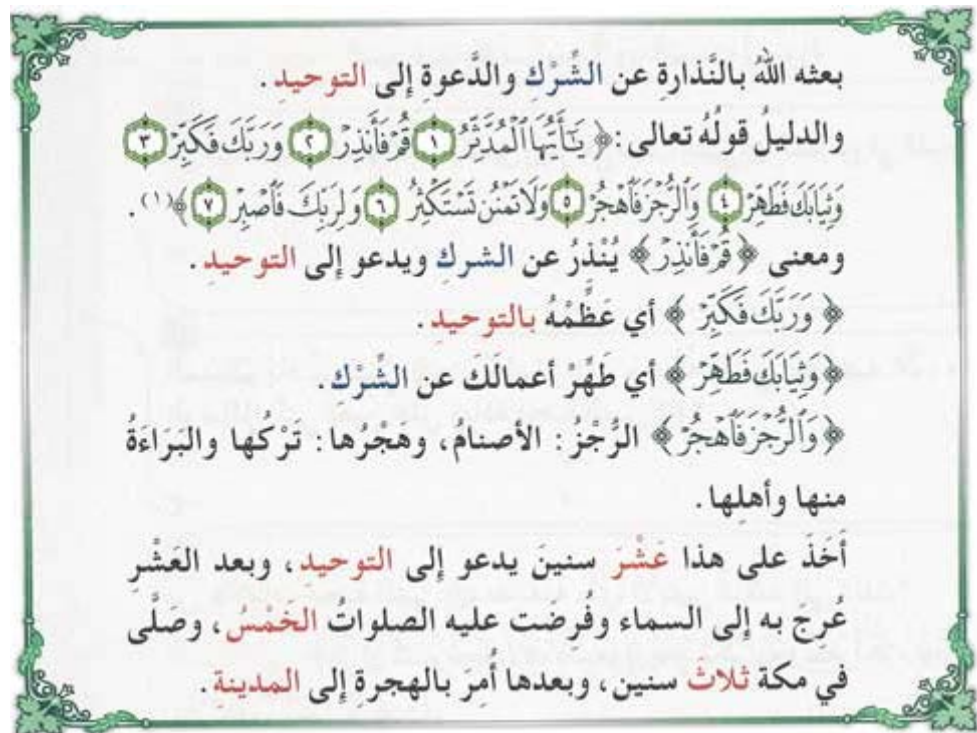 بعثه اللهُ بالنَّذارةِ عن الشِّرْكِ والدَّعوةِ إلى التوحيدِ .
والدليلُ قولُهُ تعالى : ﴿ يَٰٓأَيُّهَا ٱلْمُدَّثِّرُ ١ قُمْ فَأَنذِرْ ٢ وَرَبَّكَ فَكَبِّرْ ٣
وَثِيَابَكَ فَطَهِّرْ ٤ وَٱلرُّجْزَ فَٱهْجُرْ ٥ وَلَا تَمْنُن تَسْتَكْثِرُ ٦ وَلِرَبِّكَ فَٱصْبِرْ ٧ ﴾ (١) .
ومعنى ﴿ قُمْ فَأَنذِرْ ﴾ يُنْذِرُ عن الشركِ ويدعو إلى التوحيدِ .
﴿ وَرَبَّكَ فَكَبِّرْ ﴾ أي عَظِّمْهُ بالتوحيدِ .
﴿ وَثِيَابَكَ فَطَهِّرْ ﴾ أي طَهِّرْ أعمالَكَ عن الشِّرْكِ .
﴿ وَٱلرُّجْزَ فَٱهْجُرْ ﴾ الرُّجْزُ : الأصنامُ ، وهَجْرُها : تَرْكُها والبَرَاءَةُ
منها وأهلِها .
أَخَذَ على هذا عَشْرَ سنينَ يدعو إلى التوحيدِ ، وبعد العَشْرِ
عُرِجَ به إلى السماء وفُرِضَت عليه الصلواتُ الخَمْسُ ، وصَلَّى
في مكة ثلاثَ سنين ، وبعدها أُمِرَ بالهجرةِ إلى المدينةِ .